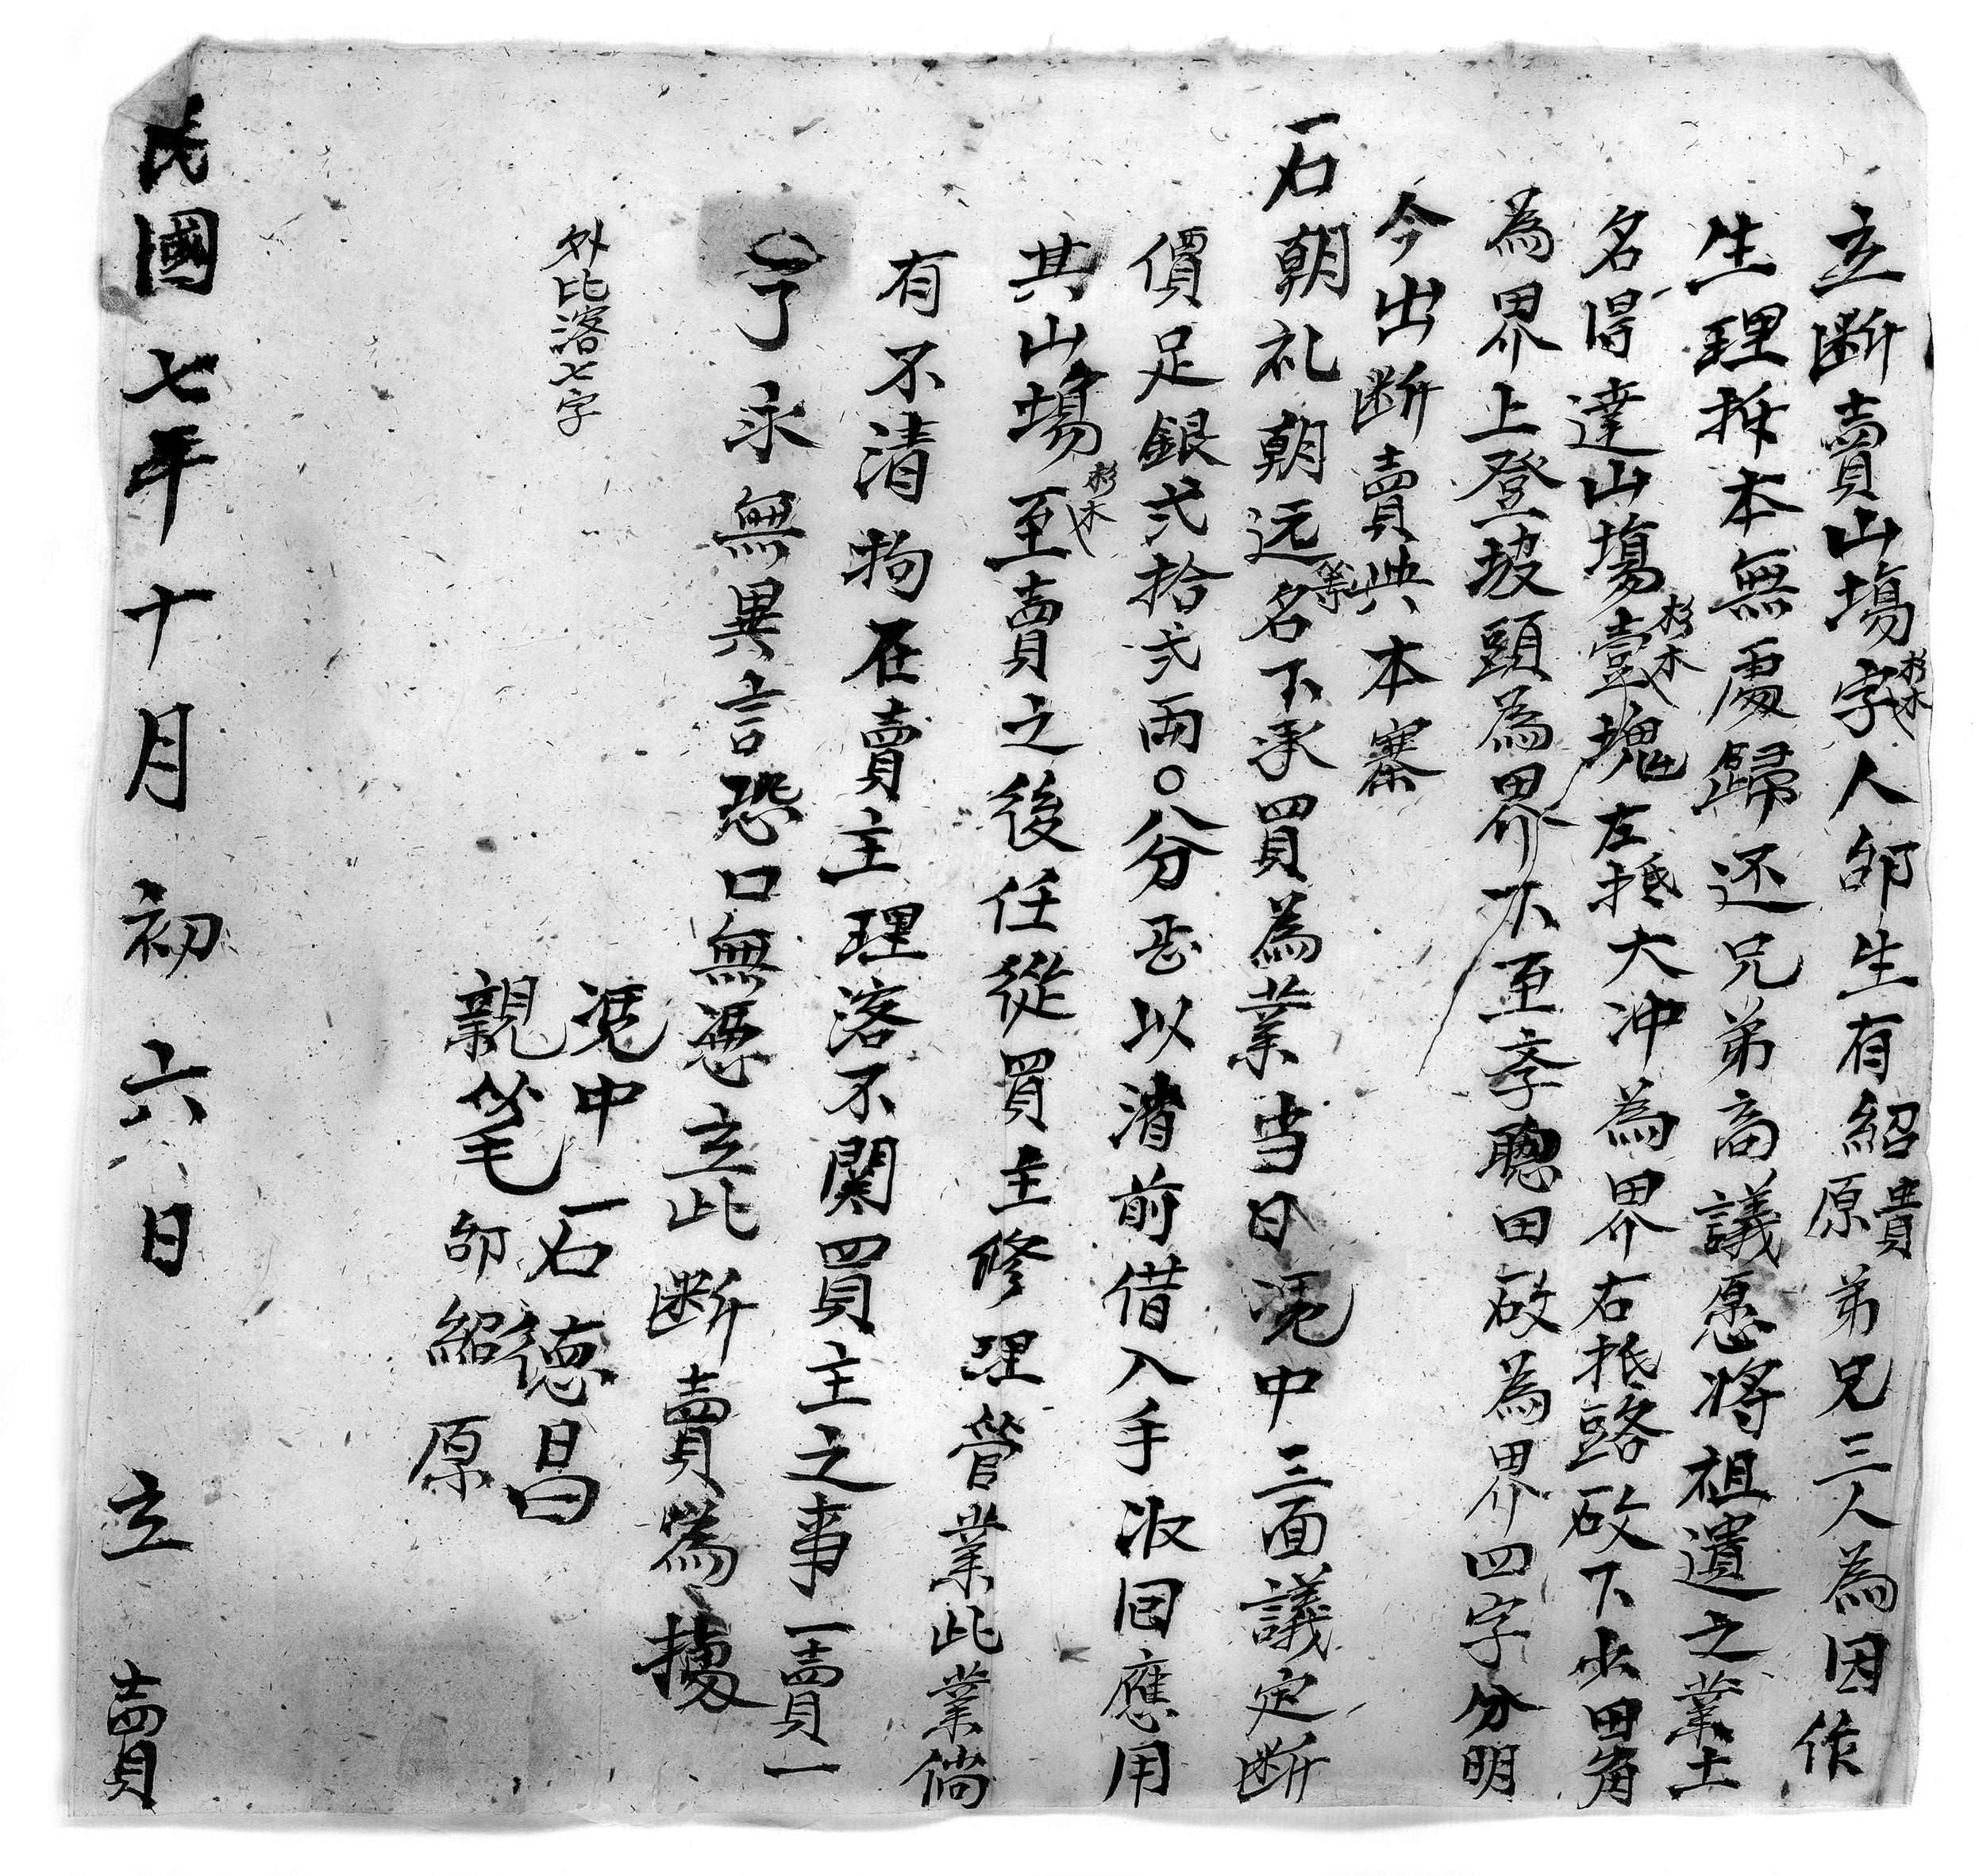 立断賣山塲杉木字人邰生有紹貴原弟兄三人為因作
生理拆本無處歸还兄弟商議愿將祖遺之業土
名得達山塲杉木壹塊左抵大冲為界右抵路砍下坎田角
為界上登坡頭為界下至秀聰田砍為界四字分明
今出断賣典本寨
石朝礼朝远等名下承買為業当日凴中三面議定断
價足銀弍拾弍两〇八分正以清前借入手汝囙應用
其山塲杉木至賣之後任從買主修理管業此業倘
有不清拘在賣主理落不関買主之事一賣一
了永無異言恐口無憑立此断賣為㨿
外比落七字
凴中 石德昌
親笔 邰紹原
民國七年十月初六日 立賣